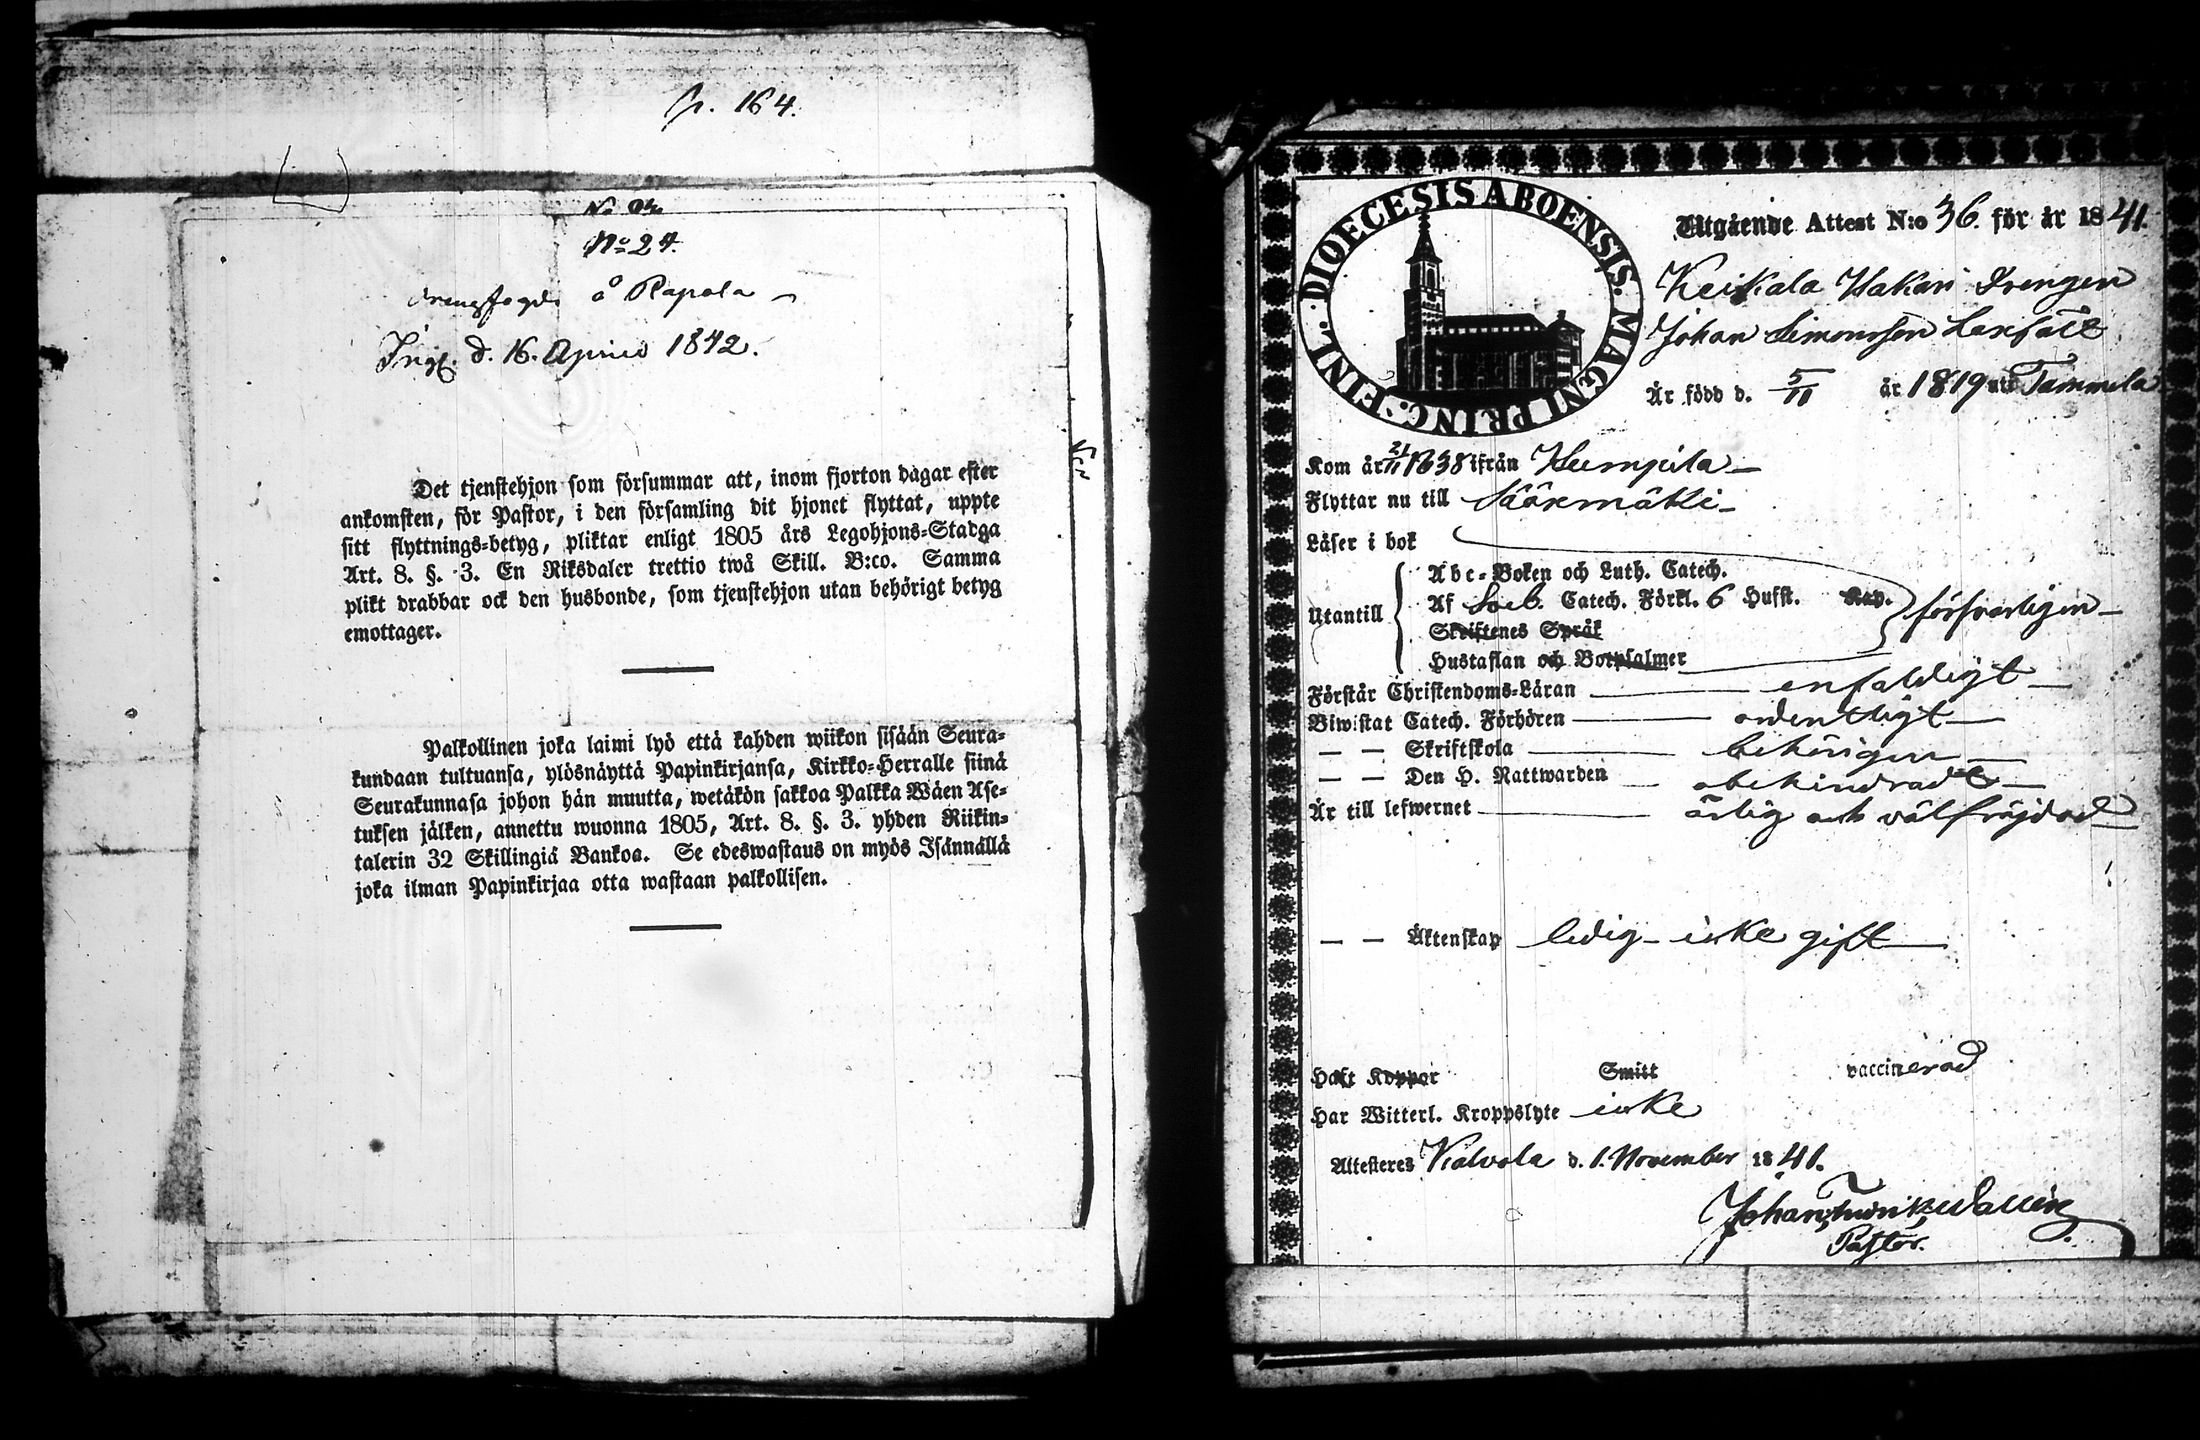 p. 164.
No 24.
Drengfogde å Rapola
Ingf. d. 16. April 1842.
Det tjenstehjon som försummar att, inom fjorton dagar efter
ankomsten, för Pastor, i den församling dit hjonet flyttat, uppte
sitt flyttnings-betyg, pliktar enligt 1805 års Legohjons-Stadga
Art. 8. §. 3. En Riksdaler trettio twå Skill. B:co. Samma
plikt drabbar ock den husbonde, som tjenstehjon utan behörigt betyg
emottager.
Palkollinen joka laimi lyö että kahden wiikon sisään Seura-
kundaan tultuansa, ylösnäyttä Papinkirjansa, Kirkko-Herralle siinä
Seurakunnasa johon hän muutta, wetäkön sakkoa Palkka Wäen Ase-
tuksen jälken, annettu wuonna 1805, Art. 8. §. 3. yhden Riikin-
talerin 32 Skillingiä Bankoa. Se edeswastaus on myös Isännällä
joka ilman Papinkirjaa otta wastaan palkollisen.
DIOECESIS ABOENSIS. MAGNI PRINC: FINL.
Utgående Attest N:o 36. för år 1841.
Keikala Hakari Drengen
Johan Simonsson
Är född d. 5/11 år 1819 uti Tammela
Kom år 21/11 1838 ifrån Humpila
Flyttar nu till Sääxmäki
Läser i bok
Utantill
Abc-Boken och Luth. Catech.
Af Sveb. Catech. Förkl. 6 Hufst. Kap.
försvarligen
Skriftenes Språk
Hustaflan och Botpsalmer
Förstår Christendoms-Läran enfaldigt
Biwistat Catech. Förhören ordentligt
— — Skriftskola behörigen
— — Den H. Nattwarden obehindradt
Är till lefwernet ärlig och välfräjdad
— — Äktenskap ledig icke gift
Haft Koppor Smitt vaccinerad
Har Witterl. Kroppslyte icke
Attesteres Kalvola d. 1. November 1841.
Johan Fredrik Wallin
Pastor.